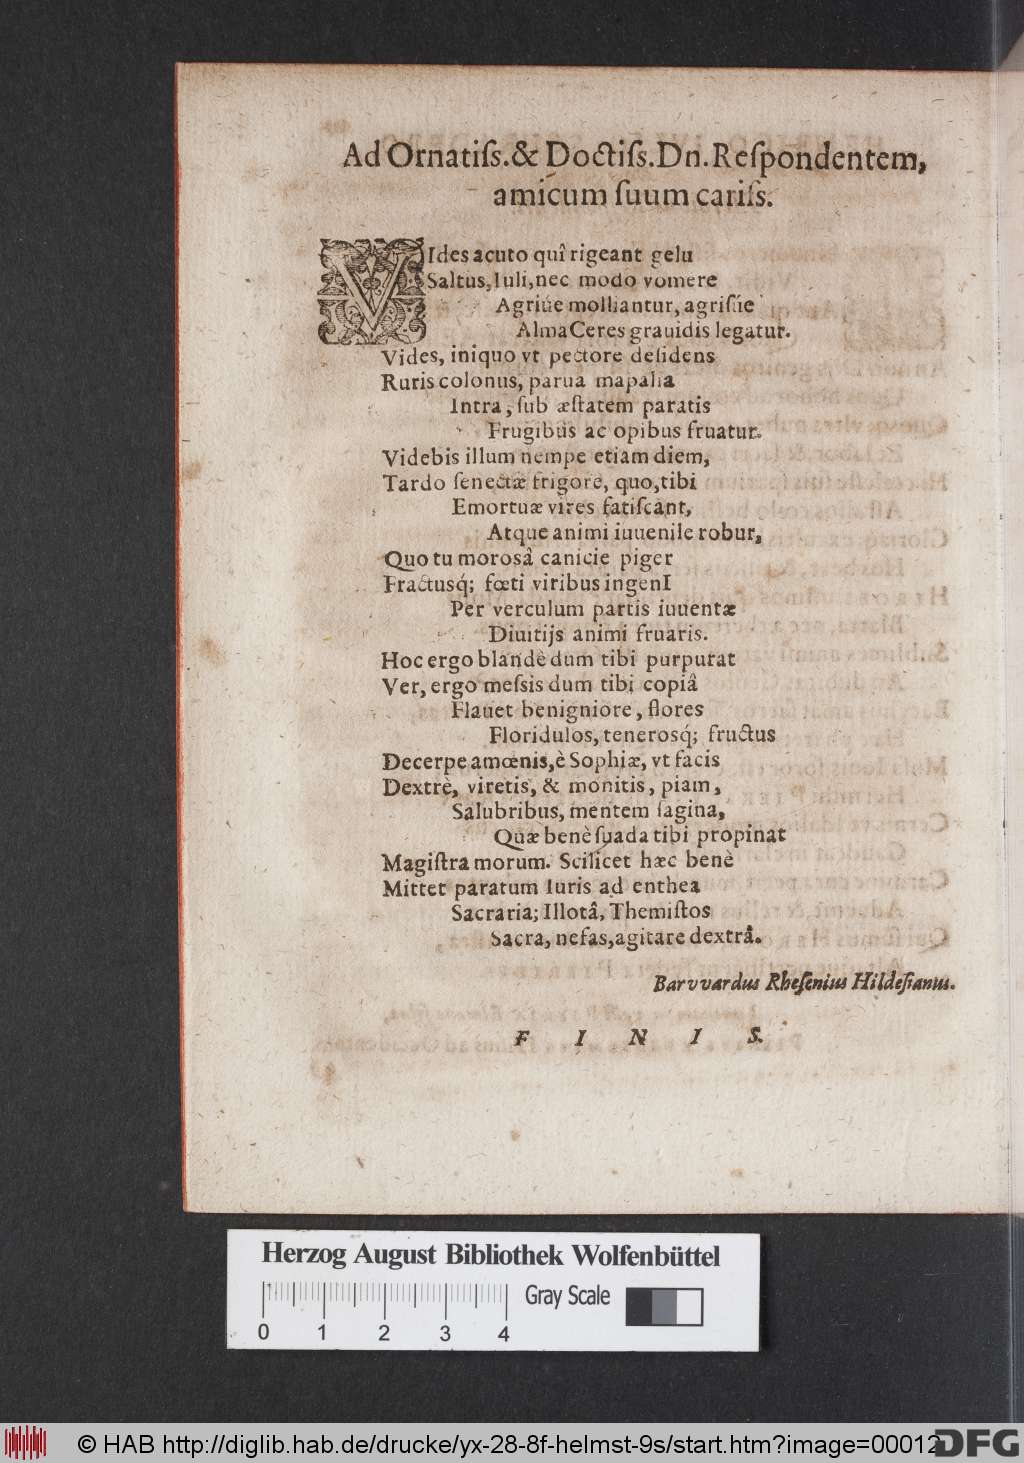 Ad Ornatiſs. & Doctiſs. Dn. Reſpondentem,
amicum ſuum cariſs.
VIdes acuto quî rigeant gelu
Saltus, Iuli, nec modo vomere
Agriúe molliantur, agriſúe
Alma Ceres grauidis legatur.
Vides, iniquo vt pectore deſidens
Ruris colonus, parua mapalia
Intra, ſub æſtatem paratis
Frugibus ac opibus fruatur.
Videbis illum nempe etiam diem,
Tardo ſenectæ frigore, quo, tibi
Emortuæ vires fatiſcant,
Atque animi iuuenile robur,
Quo tu morosâ canicie piger
Fractusq́; fœti viribus ingenI
Per verculum partis iuuentæ
Diuitijs animi fruaris.
Hoc ergo blandè dum tibi purpurat
Ver, ergo meſsis dum tibi copiâ
Flauet benigniore, flores
Floridulos, tenerosq́; fructus
Decerpe amœnis, è Sophiæ, vt facis
Dextrè, viretis, & monitis, piam,
Salubribus, mentem ſagina,
Quæ benè ſuada tibi propinat
Magiſtra morum. Scilicet hæc benè
Mittet paratum Iuris ad enthea
Sacraria; Illotâ, Themiſtos
Sacra, nefas, agitare dextrâ.
Barvvardus Rheſenius Hildeſianus.
F I N I S.
Herzog August Bibliothek Wolfenbüttel
Gray Scale
0 1 2 3 4
© HAB http://diglib.hab.de/drucke/yx-28-8f-helmst-9s/start.htm?image=00012
DFG